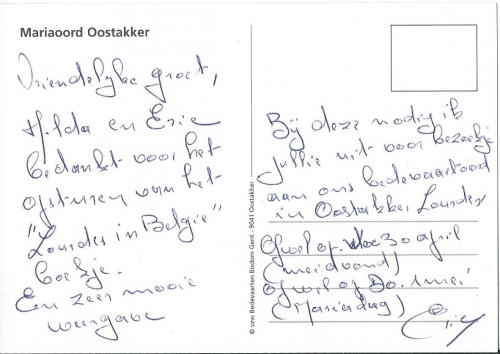 Mariaoord Oostakker
Vriendelijke groet,
Hilda en Eric
bedankt voor het
opsturen van het
"Lourdes in België"
boekje.
Een zeer mooie
weergave
© vzw Bedevaarten Bisdom Gent - 9041 Oostakker
Bij deze nodig ik
jullie uit voor bezoekje
aan ons bedevaartoord
in Oostakker Lourdes
Ofwel op 30 april
(meiavond)
ofwel op Do. 1 mei
(Mariadag)
Eric